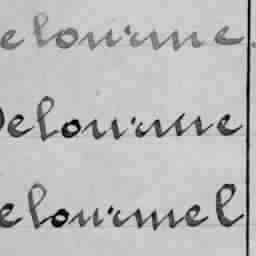 elourme
Delourme
elourmel